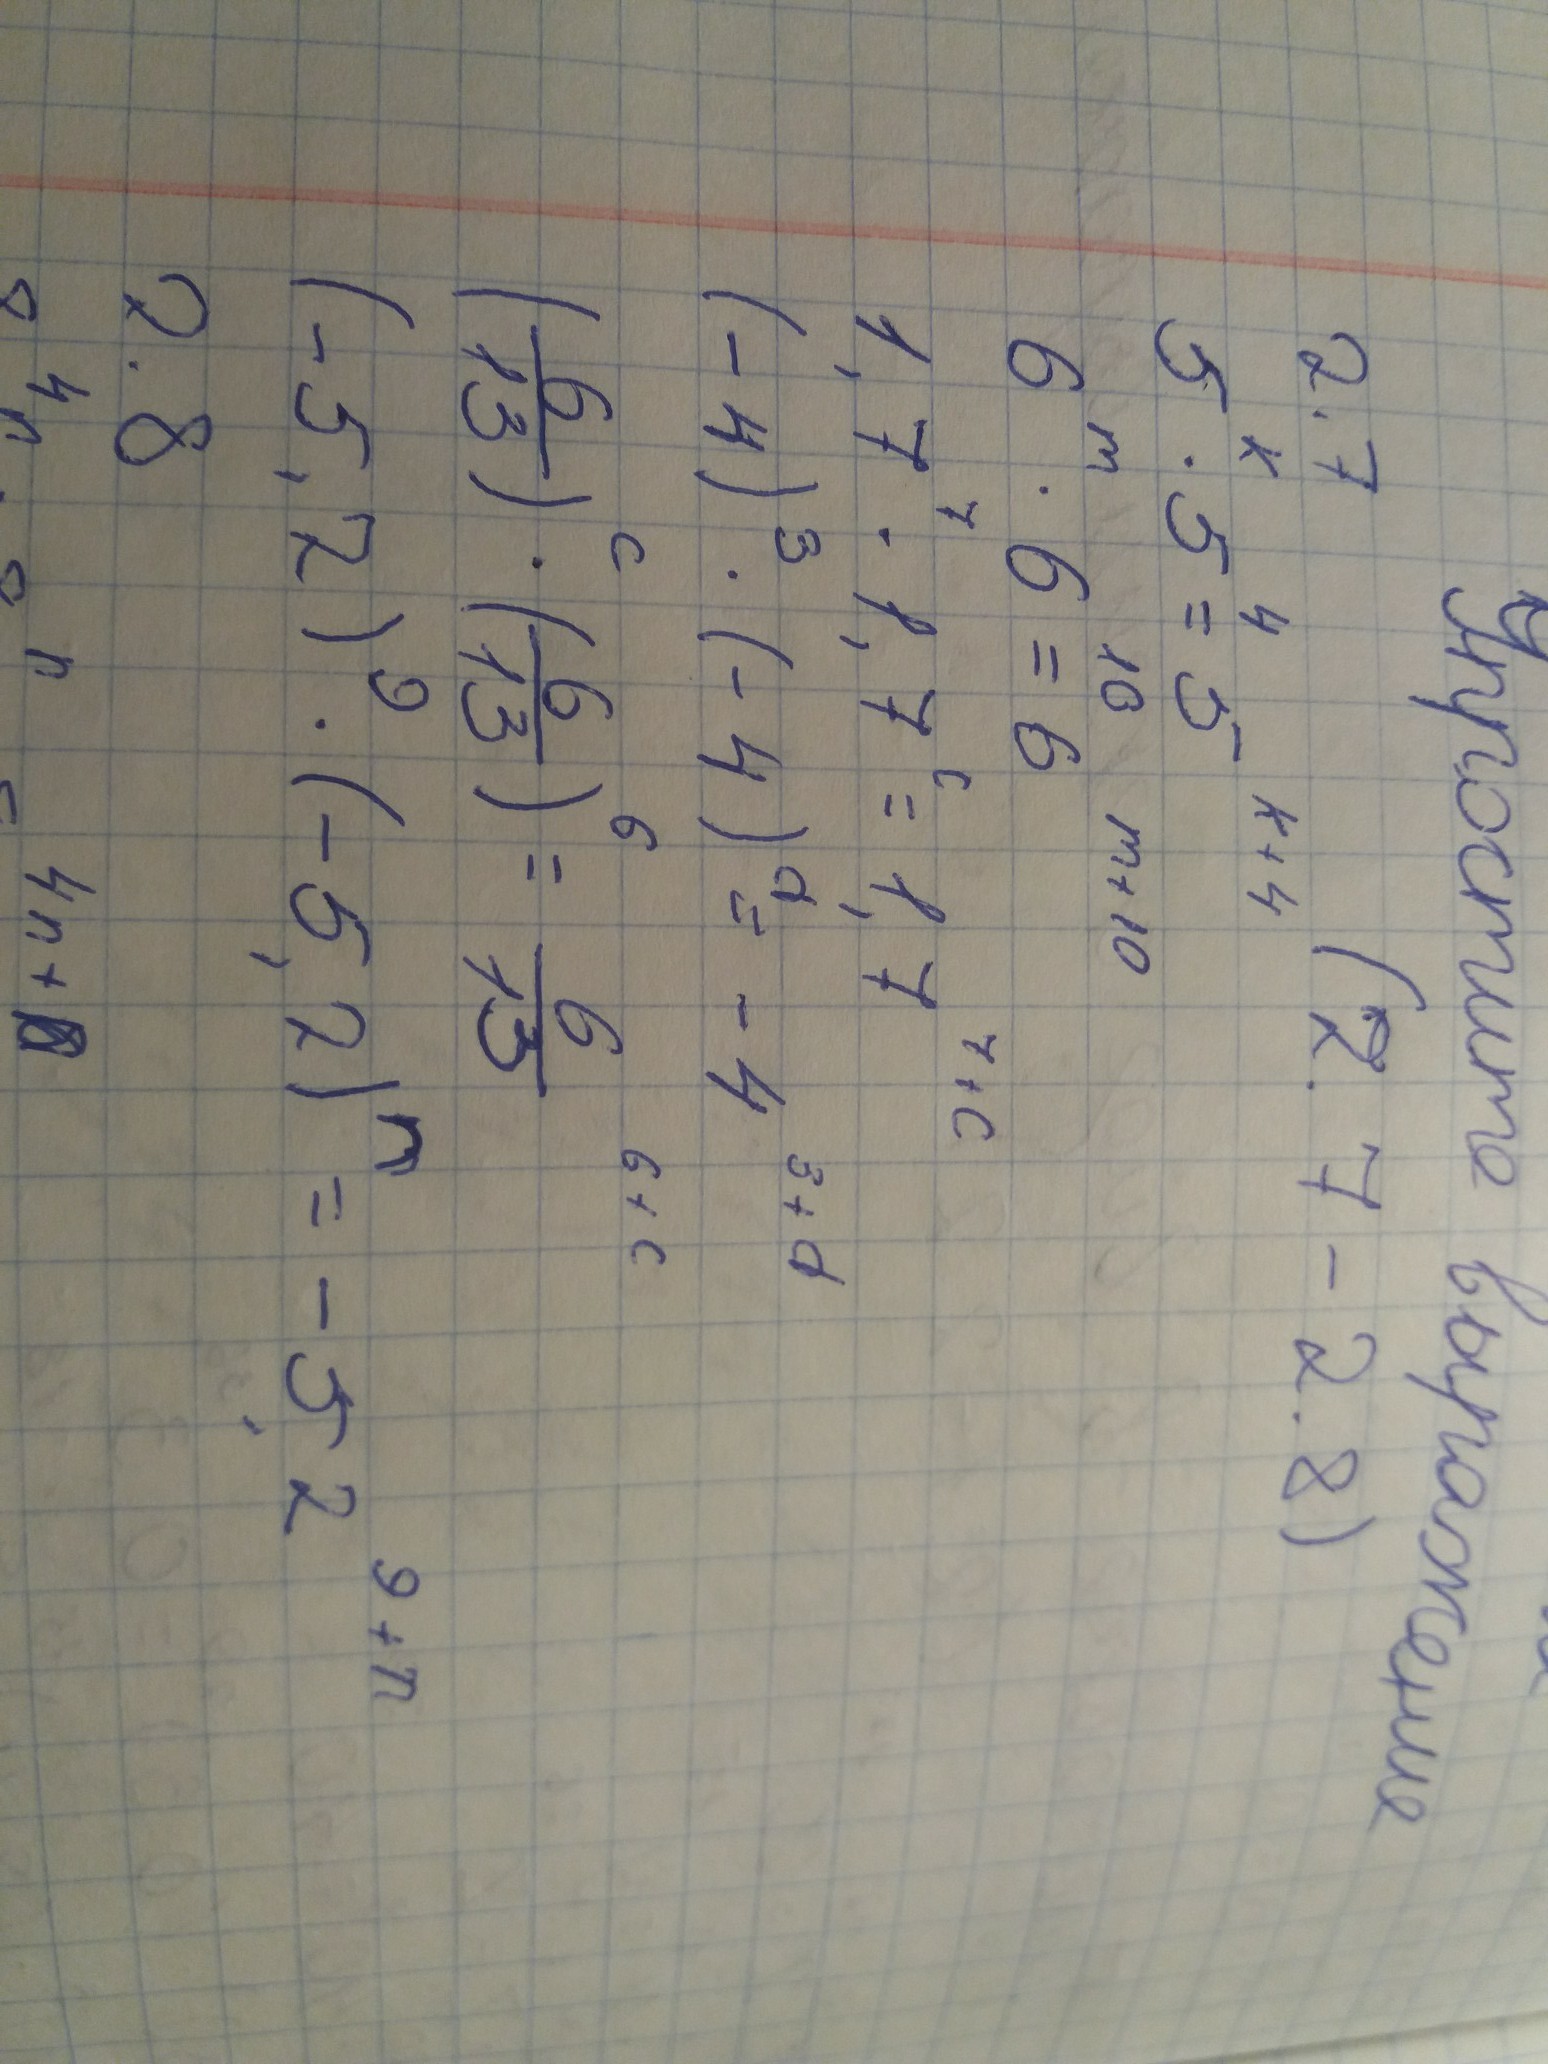 Упростите выражение
2.7 (2.7 - 2.8)
5ᵏ · 5⁴ = 5ᵏ⁺⁴
6ᵐ · 6¹⁰ = 6ᵐ⁺¹⁰
1,7⁷ · 1,7ᶜ = 1,7⁷⁺ᶜ
(-4)³ · (-4)ᵈ = -4³⁺ᵈ
(6/13)ᶜ · (6/13)⁶ = 6/13⁶⁺ᶜ
(-5,2)⁹ · (-5,2)ⁿ = -5,2⁹⁺ⁿ
2.8